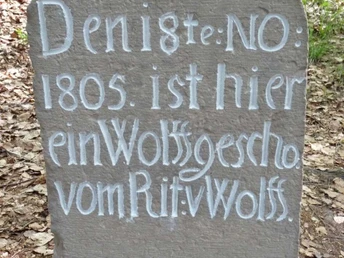 Den 18te: NO:
1805. ist hier
ein Wolff gescho.
vom Rit: v Wolff.